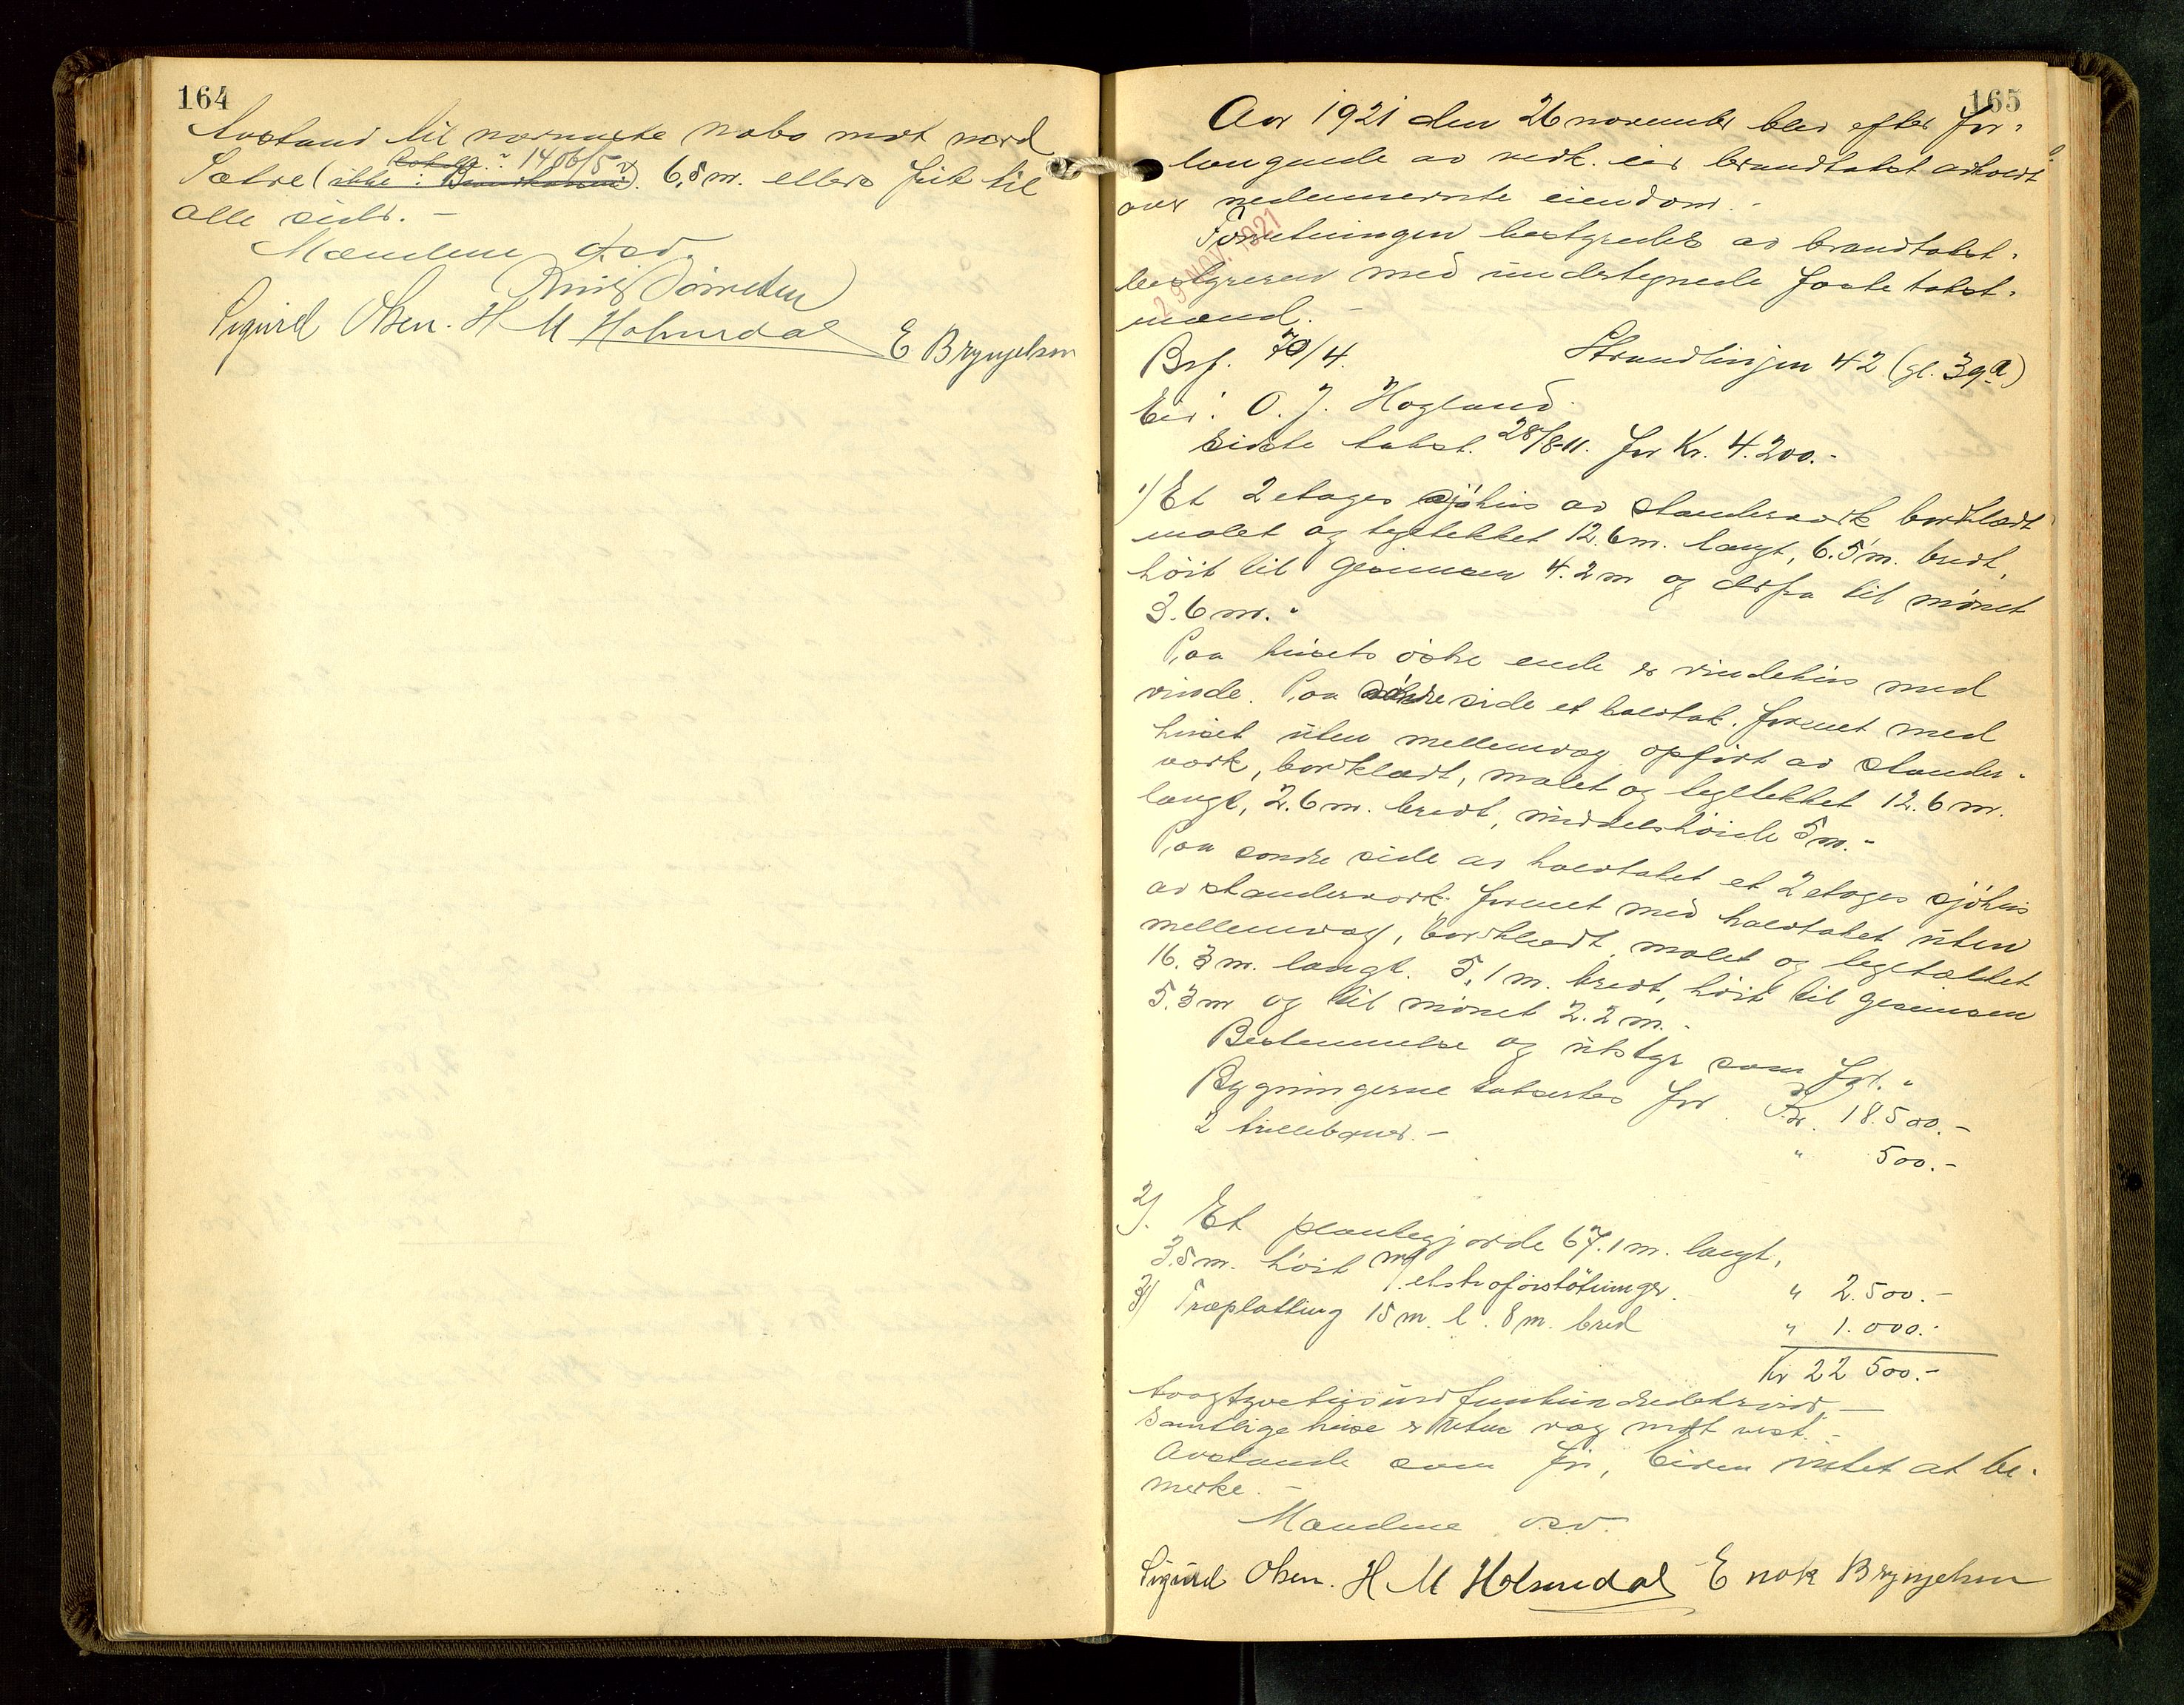 164
Avstand til nærmeste nabo mot nord
Takst. 1406/5
Sætre (ikke i Brandkassen). 6,5 m. ellers frit til
alle sider. -
Mændene osv.
Sigurd Olsen. H M Holmedal E Brynjelsen
165
Aar 1921 den 26 november blev efter for-
langende av vedk. eier brandtakst avholdt
over nedennævnte eiendom. -
29 NOV. 1921
Forretningen bestyredes av brandtakst-
bestyreren med undertegnede faste takst-
mænd. -
Brf. 70/4. Strandlinjen 42 (gl. 39a)
Eier: O. J. Hogland.
Sidste takst. 28/8-11. for Kr. 4.200.-
1) Et 2 etages sjøhus av stenderverk bordklædt
malet og tegltekket 12.6 m. langt, 6.5 m. bredt,
høit til gesimsen 4.2 m og derfra til mønet
3.6 m. -
Paa husets østre ende er vindehus med
vinde. Paa søndre side et halvtak. forenet med
huset uten mellemvæg opført av stender-
verk, bordklædt, malet og tegltekket 12.6 m.
langt, 2.6 m. bredt, middelshøide 5 m. -
Paa søndre side av halvtaket et 2 etages sjøhus
av stenderverk. forenet med halvtaket uten
mellemvæg, bordklædt malet og tegltækket
16.3 m. langt. 5,1 m. bredt, høit til gesimsen
5.3 m og til mønet 2.2 m. -
Bestemmelse og utstyr som før. -
Bygningerne takseres for Kr. 18.500.-
2 trillebaner. - " 500.-
2). Et plankegjærde 67.1 m. langt,
3.5 m. høit m/ ekstraforstøtninger. " 2.500.-
3) Træplatting 15 m. l. 8 m. bred " 1.000.-
Kr 22 500.-
toogtyvetusindfemhundredekroner, -
Samtlige huse er uten væg mot vest. -
Avstande som før, Eieren intet at be-
merke. -
Mændene osv.
Sigurd Olsen. H M Holmedal Enok Brynjelsen